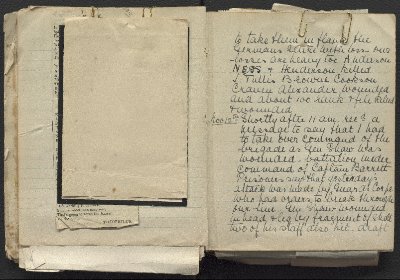 to take them in flank the
Germans retire with loss our
losses are heavy too Anderson
NESS & Henderson killed
Tullis Browne Cookson
Craven Alexander wounded
and about 100 rank & file killed
& wounded
Shortly after 11 am recd a
message to say that I had
to take over command of the
Brigade as Gen Shaw was
wounded. battalion under
command of Captain Barrett
Prisoners say that yesterdays
attack was made by Guards Corps
who had orders to break through
our line. Gen Shaw wounded
in head & leg by fragment of shell
two of his staff also hit. draft